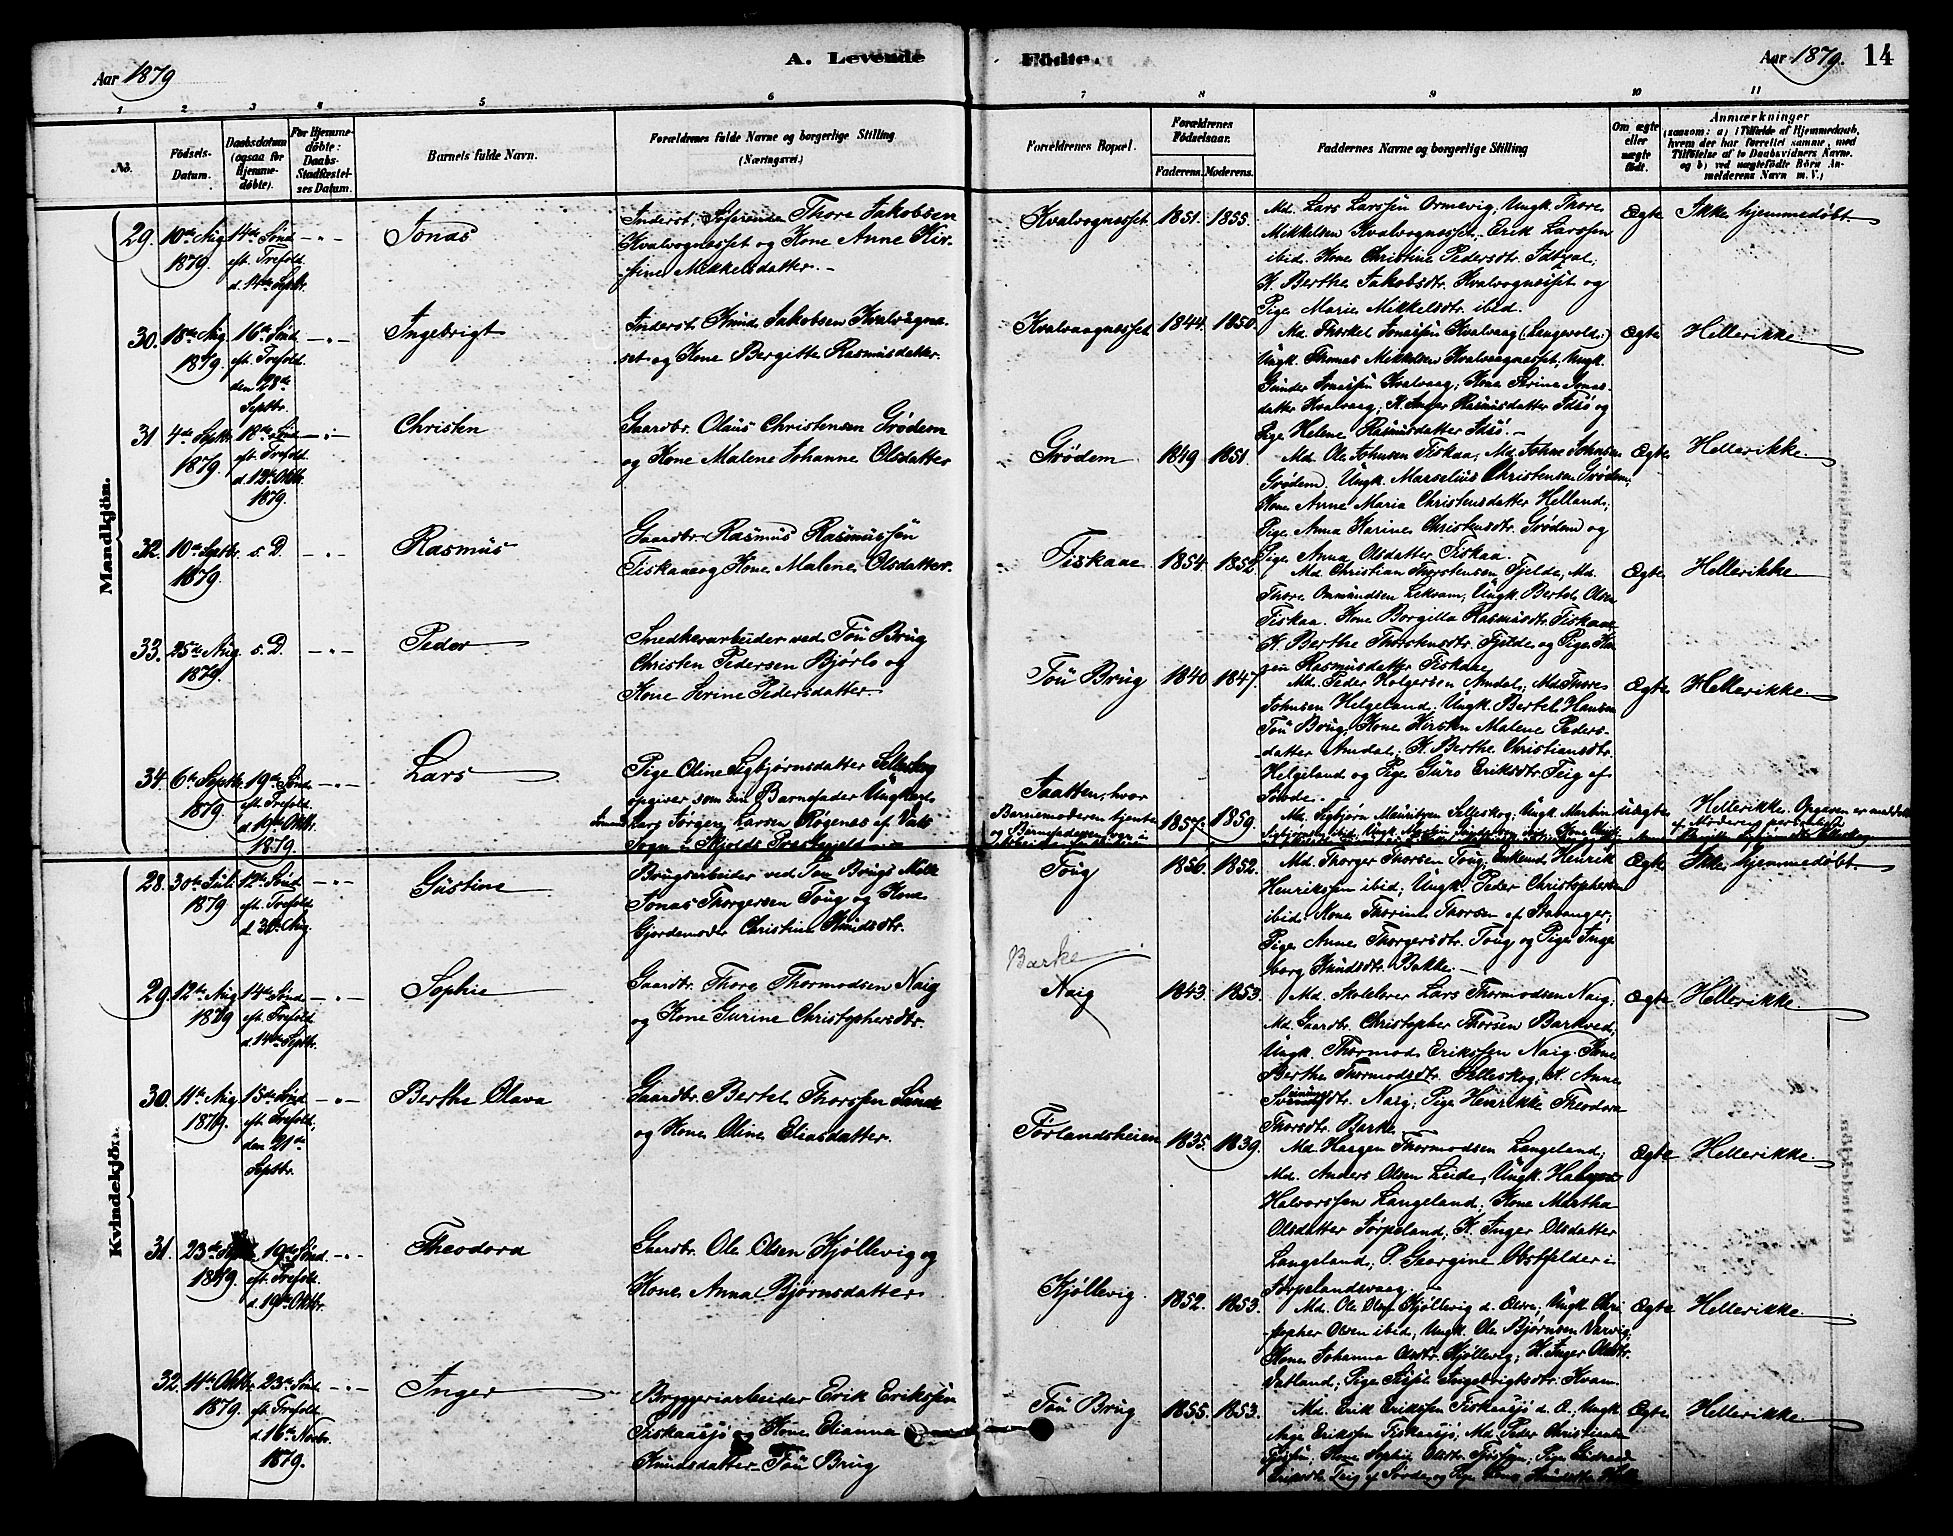 Aar 1879
A. Levende
Fødte.
Aar 1879.
14
1 2 3 4 5 6 7 8 9 10 11
No.
Fødsels-
Datum.
Daabsdatum
(ogsaa for
Hjemme-
døbte).
For Hjemme-
døbte:
Daabs-
Stadfæstel-
ses Datum.
Barnets fulde Navn.
Forældrenes fulde Navne og borgerlige Stilling
(Næringsvei.)
Forældrenes Bopæl.
Forældrenes
Fødselsaar.
Faderens. Moderens.
Faddernes Navne og borgerlige Stilling
Om ægte
eller
uægte
født.
Anmærkninger
(saasom: a) i Tilfælde af Hjemmedaab,
hvem der har forrettet samme, med
Tilføielse af to Daabsvidners Navne,
og b) ved uægtefødte Børn An-
melderens Navn m. V.)
Mandkjön.
29.
10de Aug
1879.
14de Sønd
eft. Trefold.
d. 14de Septbr.
Jonas
Inderst, Søfarende Thore Jakobsen
Kvalvognesset og Kone Anne Kir-
stine Mikkelsdatter.
Kvalvognesset 1851. 1855.
Md. Lars Larssen Ormevig; Ungk. Thore
Mikkelsen Kvalvognesset, Erik Larssen
ibid. Kone Christine Pedersdtr.
K. Berthe Jakobsdtr. Kvalvognesset og
Pige Marie Mikkelsdtr. ibid.
Ægte Ikke hjemmedøbt
30.
18de Aug
1879.
16de Sønd
eft. Trefold.
den 28de
Septbr.
Ingebrigt
Inderst. Knud Jakobsen Kvalvogne-
set og Kone Bergitte Rasmusdatter.
Kvalvaagnesset 1844. 1850.
Md. Thorkel Jonassen Kvalvaag
Ungk. Thomas Mikkelsen Kvalvaagnesset, Ungk.
Gunder Jonassen Kvalvaag; Kone Thrine Jonas-
datter Kvalvaag; K. Inger Rasmusdatter Idsø og
Pige Helene Rasmusdatter Idsø.
Ægte Hellerikke.
31
4de Septbr
1879.
18de Sønd
eft. Trefold.
d. 12te Oktbr.
1879.
Christen
Gaardbr. Olaus Christensen Grødem
og Kone Malene Johanne Olsdatter
Grødem 1849 1851.
Md. Ole Johnsen Fiskaa; Md. Johne Johnsen
Grødem. Ungk. Marselius Christensen Grødem;
Kone Anne Maria Christensdatter Helland;
Pige Anna Karine Christensdtr. Grødem og
Pige Anna Olsdatter Fiskaa.
Ægte Hellerikke.
32.
10de Septbr
1879.
s. D.
Rasmus
Gaardbr. Rasmus Rasmussen
Fiskaa og Kone Malene Olsdatter.
Fiskaae 1854. 1852.
Md. Christian Thorstensen Fjelde, Md.
Thore Ommundsen Lekvam, Ungk. Bertel Olsen
Fiskaa. Kone Borgilla Rasmusdtr. Fiskaa
K. Berthe Thorstensdtr. Fjelde og Pige Ka-
ren Rasmusdatter Fiskaae
Ægte Hellerikke
33.
25de Aug.
1879.
s. D.
Peder
Snedkerarbeider ved Tou Brug
Christen Pedersen Bjørlo og
Kone Serine Pedersdatter
Tou Brug 1840 1847.
Md. Peder Holgersen Amdal; Md. Thore
Johnsen Helgeland. Ungk. Bertel Hansen
Tou Brug, Kone Kirsten Malene Peders-
datter Amdal; K. Berthe Christiansdtr.
Helgeland og Pige Guro Eriksdtr. Teig af
Sovde.
Ægte Hellerikke.
34.
6te Septbr.
1879
19de Sønd
eft. Trefold.
d. 19de Oktbr.
1879.
Lars
Pige Oline Segbjørnsdatter Selleskog
opgiver som sin Barnefader Ungkarl
Jørgen Larsen Røgenes af Vats
Sogn i Skjolds Præstegjeld
Taatten, hvor
Barnemoderen tjente
1857. 1859.
Md. Segbjørn Mauritzen Selleskog, Ungk. Martin
Uægte
Hellerikke.
Kvindekjön.
28.
30te Juli
1879
12te Sønd
eft. Trefold.
d. 31te Aug.
Gustine
Brugsarbeider ved Tou Brugs Mølle
Jonas Thorgersen Toug og Kone
Christine Knudsdtr.
Toug 1856. 1852.
Md. Thorger Thorsen Toug; Enkemd. Henrik
Henriksen ibid; Ungk. Peder Christophersen
ibid. Kone Thorine Thorsen af Stavanger;
Pige Anne Thorgersdtr. Toug og Pige Inge
borg Knudsdtr. Bakke.
Ægte Ikke hjemmedøbt.
29.
12te Aug
1879
14de Sønd
eft. Trefold.
d. 14de Septbr.
Sophie
Gaardbr. Thore Thormodsen Naig
og Kone Gurine Christophersdtr.
Barke
Naig 1843. 1853.
Md. Skolelærer Lars Thormodsen Naig;
Md. Gaardbr. Christopher Thorsen Barkved;
Ungk. Thormod Eriksen Naig. Kone
Berthe Thormodsdtr. Selleskog, K. Anne
Naig; Pige Henrikke Theodora
Thorsdtr. Barke
Ægte Hellerikke
30.
11te Aug
1879.
15de Sønd
eft. Trefold.
den 21de
Septbr.
Berthe Olava
Gaardbr. Bertel Thorssen Lunde
og Kone Oline Eliasdatter.
Førlandsheien 1835. 1839.
Md. Haagen Thormodsen Langeland;
Md. Anders Olsen Leide, Ungk. Halvor
Halvorssen Langeland; Kone Martha
Olsdatter Tørpeland; K. Inger Olsdatter
Langeland, P. Georgine Obstfelder i
Tørpelandsvaag.
Ægte Hellerikke.
31.
23de
1879.
19de Sønd.
eft. Trefold.
d. 19de Oktbr.
Theodora
Gaardbr. Ole Olsen Kjøllevig og
Kone Anna Bjørnsdatter
Kjøllevig. 1852. 1853.
Md. Ole Olsen Kjøllevig d. Eldre; Ungk. Chri-
stopher Olsen ibid; Ungk. Ole Bjørnsen Varvig;
Kone Johanna Olsdtr. Kjøllevig; K. Inger Olsdtr.
Jøtland; Pige Ingebrigtsdtr. Kvam.
Ægte Hellerikke.
32.
11te Oktbr
1879.
23de Sønd
eft. Trefold.
d. 16de Novbr.
1879.
Inger
Bryggeriarbeider Erik Eriksen
Fiskaasjø og Kone Elianna
Knudsdatter Tou Brug
Tou Brug 1855. 1853.
Md. Erik Eriksen Fiskaasjø d. Æ.; Ungk
Aage Eriksen Fiskaasjø; Md. Peder Christiansen
Ægte Hellerikke